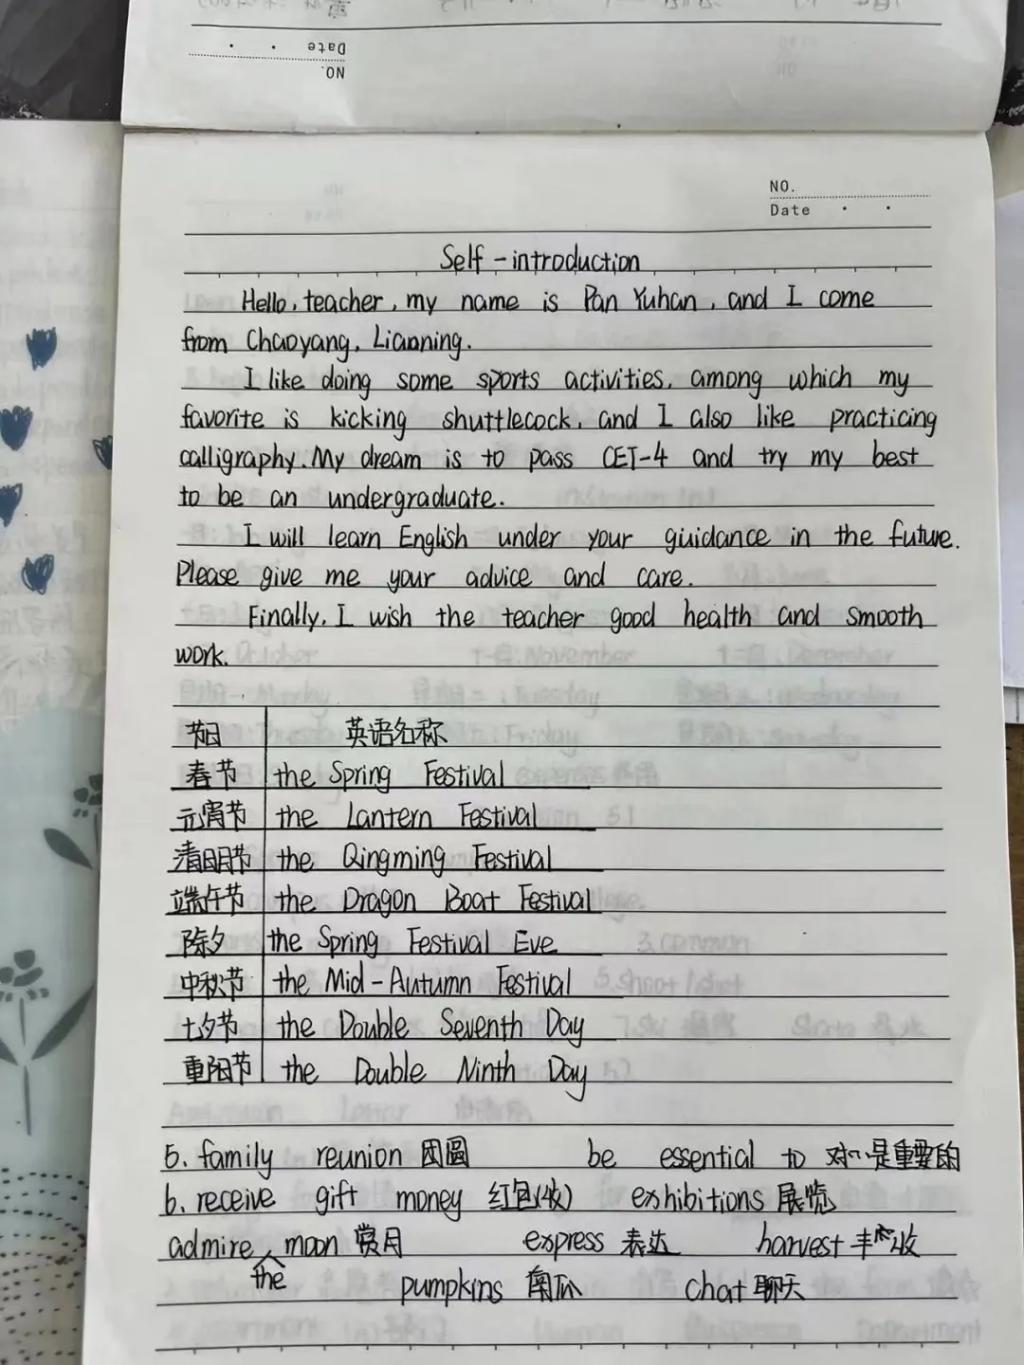 NO.
Date
NO.
Date
Self-introduction
Hello, teacher, my name is Pan Yuhan, and I come
from Chaoyang, Liaoning.
I like doing some sports activities, among which my
favorite is kicking shuttlecock, and I also like practicing
calligraphy. My dream is to pass CET-4 and try my best
to be an undergraduate.
I will learn English under your guidance in the future.
Please give me your advice and care.
Finally, I wish the teacher good health and smooth
work.
节日 英语名称
春节 the Spring Festival
元宵节 the Lantern Festival
清明节 the Qingming Festival
端午节 the Dragon Boat Festival
除夕 the Spring Festival Eve
中秋节 the Mid-Autumn Festival
七夕节 the Double Seventh Day
重阳节 the Double Ninth Day
5. family reunion 团圆 be essential to 对…是重要的
6. receive gift money 红包(收) exhibitions 展览
admire the moon 赏月 express 表达 harvest 丰收
pumpkins 南瓜 chat 聊天